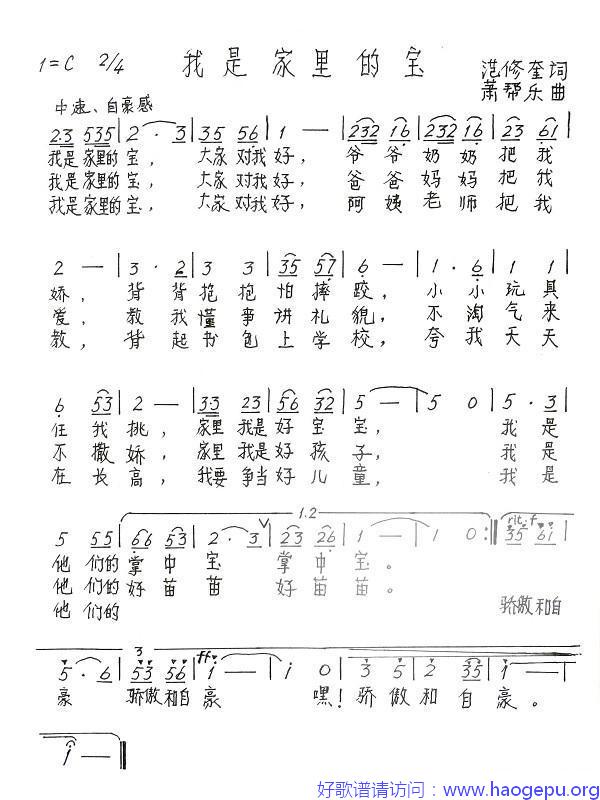 1=C 2/4 我是家里的宝 范修奎词
萧帮乐曲
中速、自豪感
2·3 535 | 2 - · 3 | 35 56 | 1 — | 232 16 | 232 16 | 23 61 |
我是家里的宝， 大家对我好， 爷爷奶奶把我
我是家里的宝， 大家对我好， 爸爸妈妈把我
我是家里的宝， 大家对我好， 阿姨老师把我
2 — | 3 · 2 | 3 3 | 35 57 | 6 — | 1 · 6 | 1 1 |
娇， 背背抱抱怕摔跤， 小小玩具
爱， 教我懂事讲礼貌， 不淘气来
教， 背起书包上学校， 夸我天天
6 53 | 2 — | 33 23 | 56 32 | 5 — | 5 0 | 5 · 3 |
任我挑， 家里我是好宝宝， 我是
不撒娇， 家里我是好孩子， 我是
在长高， 我要争当好儿童， 我是
1.2
rit. f
5 55 | 66 53 | 2 · 3 | 23 26 | 1 — | 1 0 :| 35 61 |
他们的掌中宝 掌中宝。
他们的好苗苗 好苗苗。
他们的 骄傲和自
3 ff
5 · 6 | 53 56 | 1 — | 1 0 | 3 5 | 2 35 | 1 — |
豪 骄傲和自豪 嘿！骄傲和自豪。
1 — ||
好歌谱请访问：www.haogepu.org